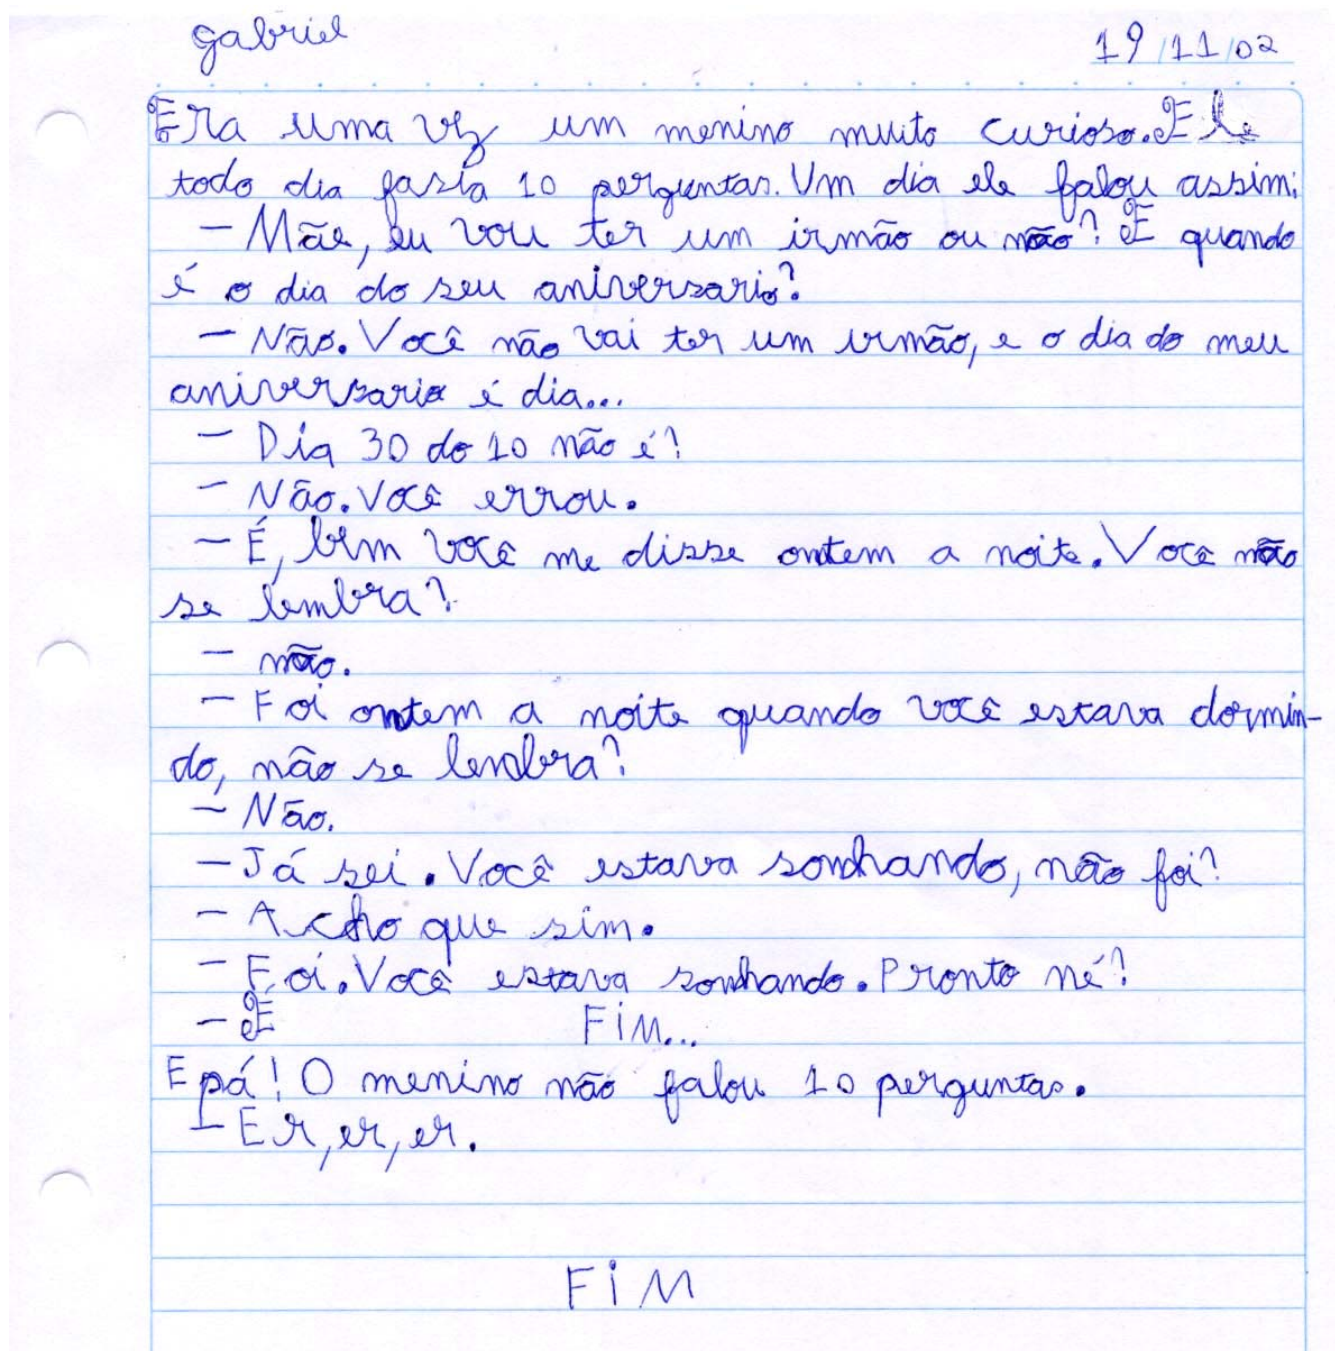 gabriel 19/11/02
Era uma vez um menino muito curioso. Ele
todo dia fasia 10 perguntas. Um dia ele falou assim:
- Mãe, eu vou ter um irmão ou não? E quando
é o dia do seu aniversario?
- Não. Você não vai ter um irmão, e o dia do meu
aniversario é dia...
- Dia 30 do 10 não é?
- Não. Você errou.
- É, bem você me disse ontem a noite. Você não
se lembra?
- não.
- Foi ontem a noite quando você estava dormin-
do, não se lembra?
- Não.
- Já sei. Você estava sonhando, não foi?
- Acho que sim.
- Foi. Você estava sonhando. Pronto né?
- E FIM...
Epá! O menino não falou 10 perguntas.
- Er, er, er.
FIM